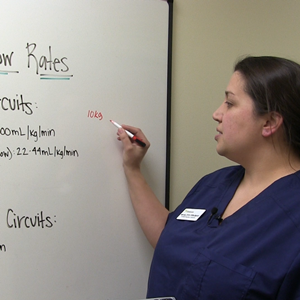 ow Rates
rcuits:
00mL/kg/min
ow): 22-44mL/kg/min
10kg
Circuits:
n